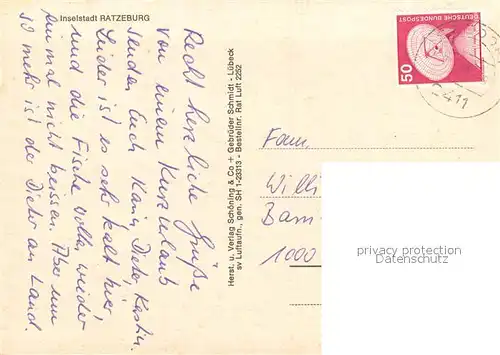 Inselstadt RATZEBURG
Recht herzliche Grüße
von einem Kurzurlaub
senden Euch Karin, Dieter, Karstin.
Leider ist es sehr kalt hier,
und die Fische wollen wieder
einmal nicht beissen. Aber um
so mehr ist der Dieter an Land.
Herst. u. Verlag Schöning & Co + Gebrüder Schmidt - Lübeck
sv Luftaufn., gen. SH 1-23313 - Bestellnr. Rat Luft 2252
DEUTSCHE BUNDESPOST
50
2411
Fam.
Willi
Bam
1000
privacy protection